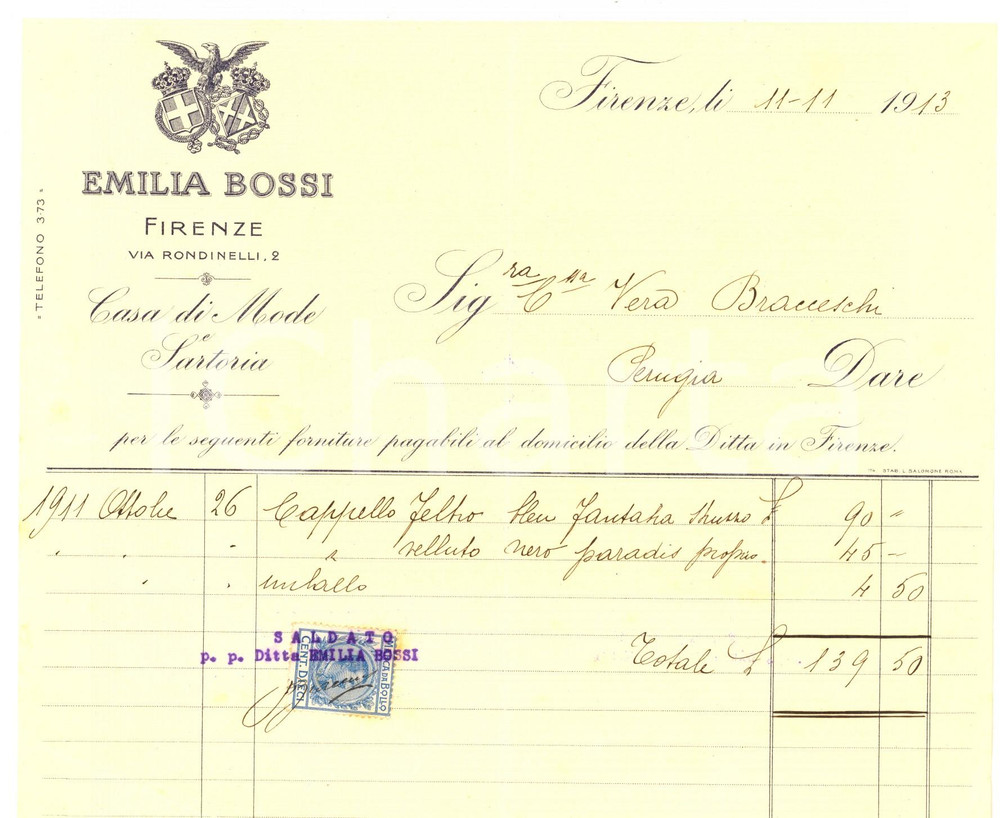 EMILIA BOSSI
FIRENZE
VIA RONDINELLI, 2
Casa di Mode
e
Sartoria
"TELEFONO 3-73"
Firenze, li 11-11 1913
Sig.ra C.ssa Vera Bracceschi
Perugia Dare
per le seguenti forniture pagabili al domicilio della Ditta in Firenze.
STAB. L. SALOMONE ROMA
1911 Ottobre 26 Cappello Feltro bleu fantasia struzzo £ 90 "
" " " " velluto nero paradis proprio 45 –
" " imballo 4 50
Totale £ 139 50
SALDATO
p. p. Ditta EMILIA BOSSI
CENT. DIECI
MARCA DA BOLLO